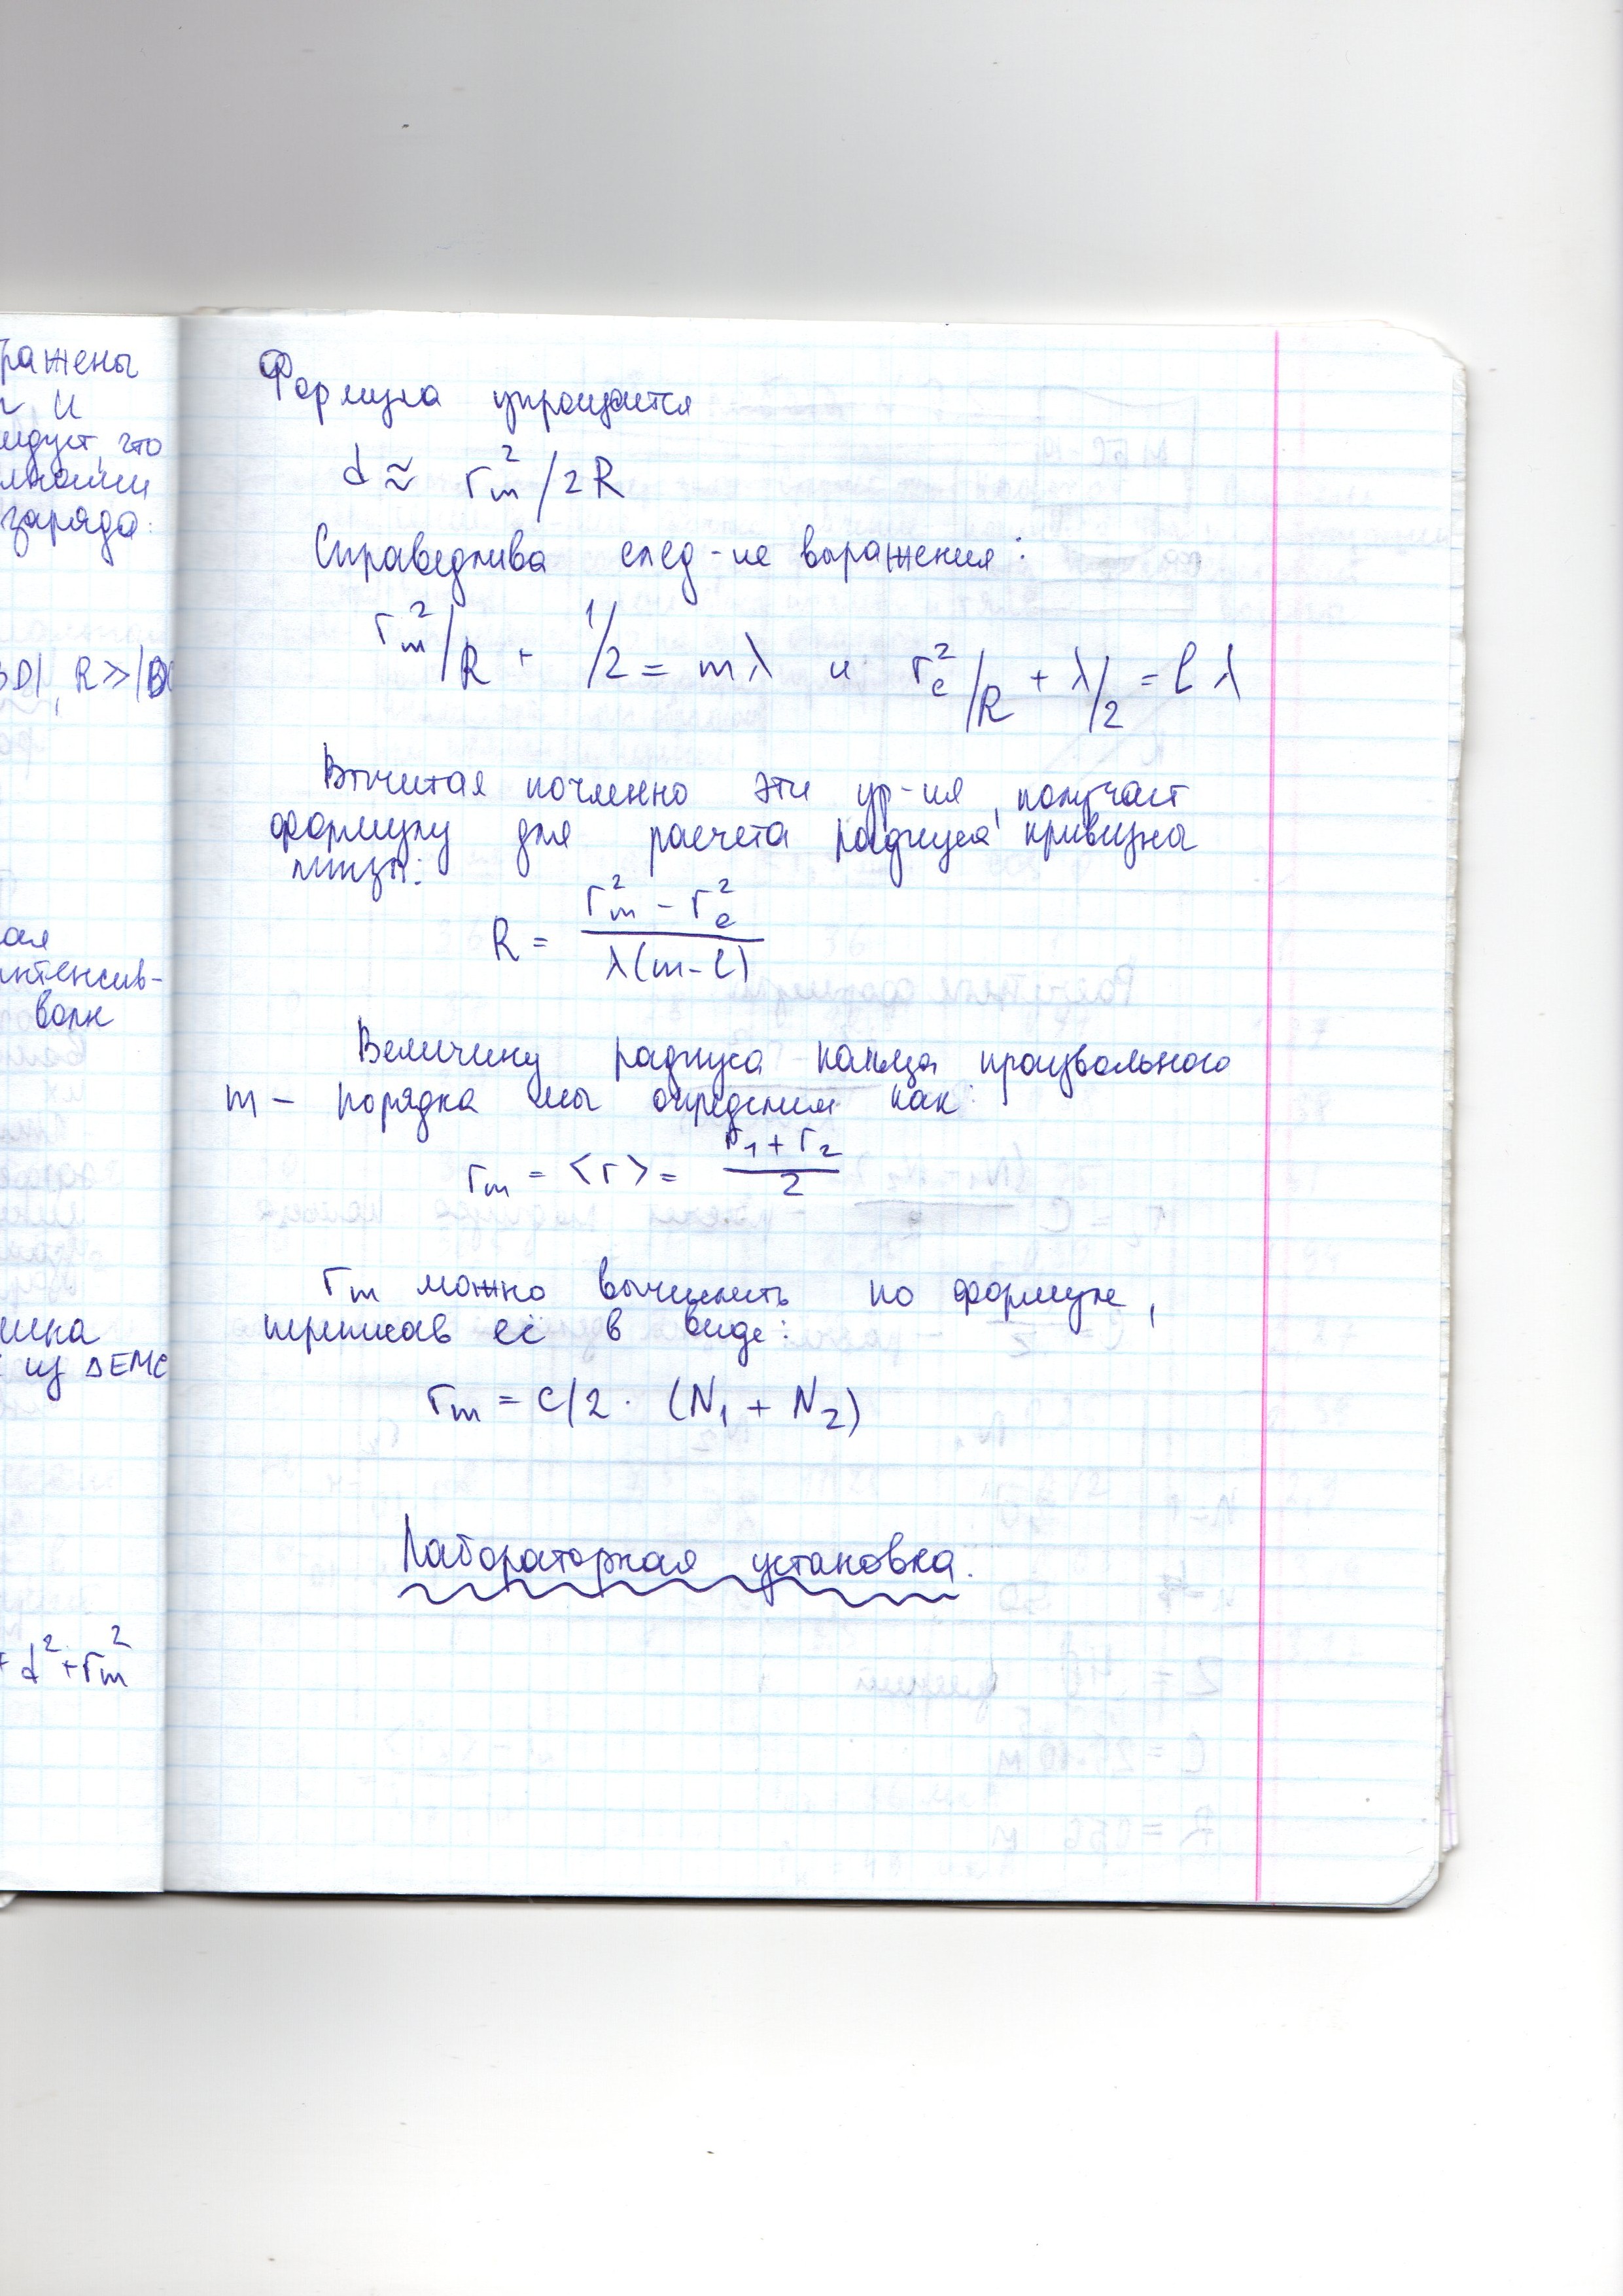 ражены
и
ледует, что
заряда:
R≫|B
ая
интенсив-
волн
из ΔEMC
d²+rₘ²
Формула упрощается
d ≈ rₘ²/2R
Справедлива след-ие выражения:
rₘ²/R + 1/2 = mλ и rₑ²/R + λ/2 = lλ
Вычитая почленно эти ур-ия, получает
формулу для расчета радиуса кривизны
линзы:
R = (rₘ² - rₑ²)/(λ(m-l))
Величину радиуса кольца произвольного
m - порядка мы определим как:
rₘ = <r> = (r₁ + r₂)/2
rₘ можно вычислить по формуле,
переписав её в виде:
rₘ = c/2 · (N₁ + N₂)
Лабораторная установка.